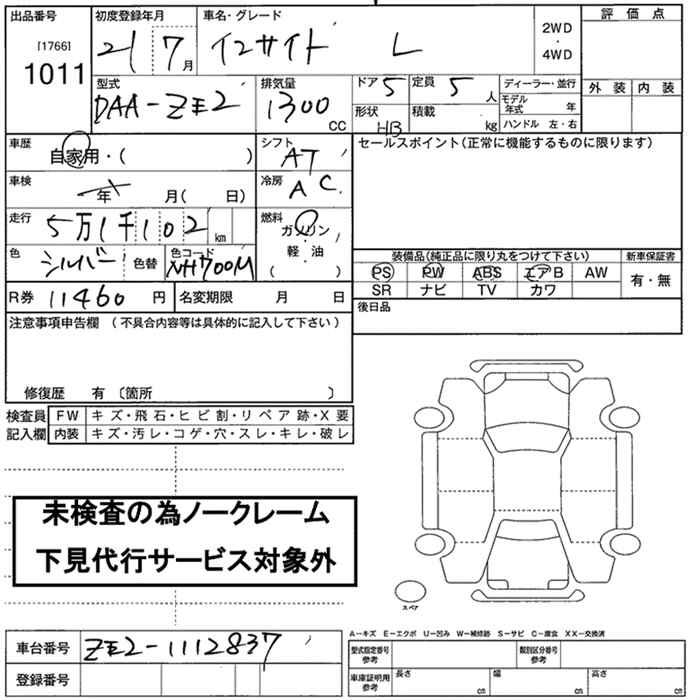 出品番号 初度登録年月 車名・グレード 評価点
[1766] 21 7月 インサイト L 2WD
・
1011 4WD
型式 排気量 ドア 5 定員 5 人 ディーラー・並行 外装 内装
DAA-ZE2 1300 CC 形状 HB 積載 kg モデル年式 年
ハンドル 左・右
車歴 自家用・( ) シフト AT セールスポイント(正常に機能するものに限ります)
車検 年 月( 日) 冷房 AC
走行 5万1千102 km 燃料 ガソリン・
色 シルバー 色替 色コード NH700M 軽・油
( )
装備品(純正品に限り丸をつけて下さい) 新車保証書
PS PW ABS エアB AW 有・無
SR ナビ TV カワ
R券 11460 円 名変期限 月 日
後日品
注意事項申告欄 (不具合内容等は具体的に記入して下さい)
修復歴 有〔箇所 〕
検査員 FW キズ・飛石・ヒビ割・リペア跡・X要
記入欄 内装 キズ・汚レ・コゲ・穴・スレ・キレ・破レ
未検査の為ノークレーム
下見代行サービス対象外
スペア
A−キズ E−エクボ U−凹み W−補修跡 S−サビ C−腐食 XX−交換済
車台番号 ZE2-1112837
型式指定番号 参考 類別区分番号 参考
登録番号
車庫証明用 参考 長さ cm 幅 cm 高さ cm